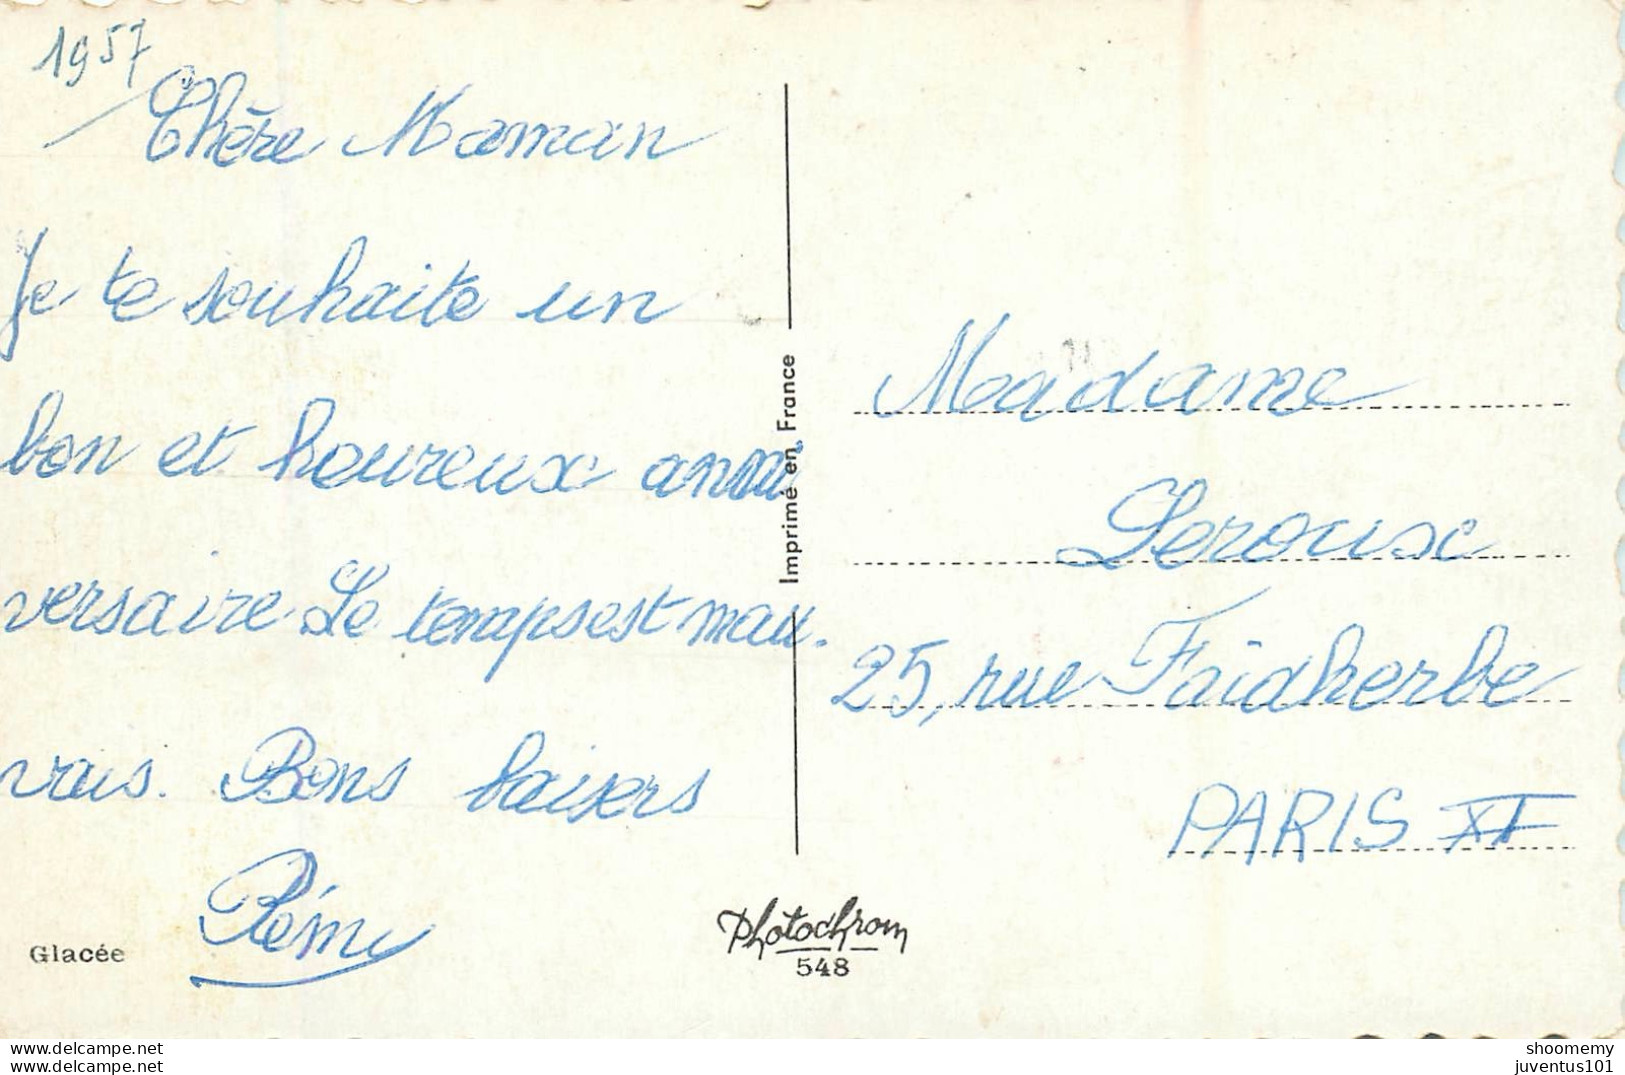 1957
Chère Maman
Je te souhaite un
bon et houreux anni
versaire Le temps est mau.
vais. Bons baisers
Rémi
Glacée
Imprimé en France
Photochrom
548
Madame
Leroux
25, rue Faidherbe
PARIS XI
www.delcampe.net
www.delcampe.net
shoomemy
juventus101